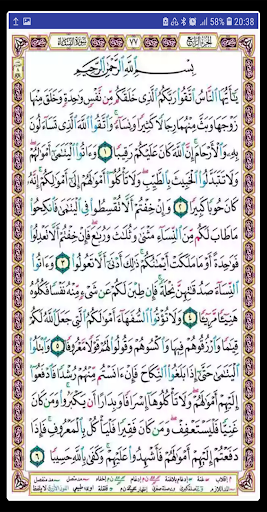 58% 20:38
الجزء الرابع ٧٧ سورة النساء
بِسْمِ ٱللَّهِ ٱلرَّحْمَـٰنِ ٱلرَّحِيمِ
يَـٰٓأَيُّهَا ٱلنَّاسُ ٱتَّقُوا۟ رَبَّكُمُ ٱلَّذِى خَلَقَكُم مِّن نَّفْسٍ وَٰحِدَةٍ وَخَلَقَ مِنْهَا
زَوْجَهَا وَبَثَّ مِنْهُمَا رِجَالًا كَثِيرًا وَنِسَآءً ۚ وَٱتَّقُوا۟ ٱللَّهَ ٱلَّذِى تَسَآءَلُونَ
بِهِۦ وَٱلْأَرْحَامَ ۚ إِنَّ ٱللَّهَ كَانَ عَلَيْكُمْ رَقِيبًا ١ وَءَاتُوا۟ ٱلْيَتَـٰمَىٰٓ أَمْوَٰلَهُمْ ۖ
وَلَا تَتَبَدَّلُوا۟ ٱلْخَبِيثَ بِٱلطَّيِّبِ ۖ وَلَا تَأْكُلُوٓا۟ أَمْوَٰلَهُمْ إِلَىٰٓ أَمْوَٰلِكُمْ ۚ إِنَّهُۥ
كَانَ حُوبًا كَبِيرًا ٢ وَإِنْ خِفْتُمْ أَلَّا تُقْسِطُوا۟ فِى ٱلْيَتَـٰمَىٰ فَٱنكِحُوا۟
مَا طَابَ لَكُم مِّنَ ٱلنِّسَآءِ مَثْنَىٰ وَثُلَـٰثَ وَرُبَـٰعَ ۖ فَإِنْ خِفْتُمْ أَلَّا تَعْدِلُوا۟
فَوَٰحِدَةً أَوْ مَا مَلَكَتْ أَيْمَـٰنُكُمْ ۚ ذَٰلِكَ أَدْنَىٰٓ أَلَّا تَعُولُوا۟ ٣ وَءَاتُوا۟
ٱلنِّسَآءَ صَدُقَـٰتِهِنَّ نِحْلَةً ۚ فَإِن طِبْنَ لَكُمْ عَن شَىْءٍ مِّنْهُ نَفْسًا فَكُلُوهُ
هَنِيٓـًٔا مَّرِيٓـًٔا ٤ وَلَا تُؤْتُوا۟ ٱلسُّفَهَآءَ أَمْوَٰلَكُمُ ٱلَّتِى جَعَلَ ٱللَّهُ لَكُمْ
قِيَـٰمًا وَٱرْزُقُوهُمْ فِيهَا وَٱكْسُوهُمْ وَقُولُوا۟ لَهُمْ قَوْلًا مَّعْرُوفًا ٥ وَٱبْتَلُوا۟
ٱلْيَتَـٰمَىٰ حَتَّىٰٓ إِذَا بَلَغُوا۟ ٱلنِّكَاحَ فَإِنْ ءَانَسْتُم مِّنْهُمْ رُشْدًا فَٱدْفَعُوٓا۟
إِلَيْهِمْ أَمْوَٰلَهُمْ ۖ وَلَا تَأْكُلُوهَآ إِسْرَافًا وَبِدَارًا أَن يَكْبَرُوا۟ ۚ وَمَن كَانَ
غَنِيًّا فَلْيَسْتَعْفِفْ ۖ وَمَن كَانَ فَقِيرًا فَلْيَأْكُلْ بِٱلْمَعْرُوفِ ۚ فَإِذَا
دَفَعْتُمْ إِلَيْهِمْ أَمْوَٰلَهُمْ فَأَشْهِدُوا۟ عَلَيْهِمْ ۚ وَكَفَىٰ بِٱللَّهِ حَسِيبًا ٦